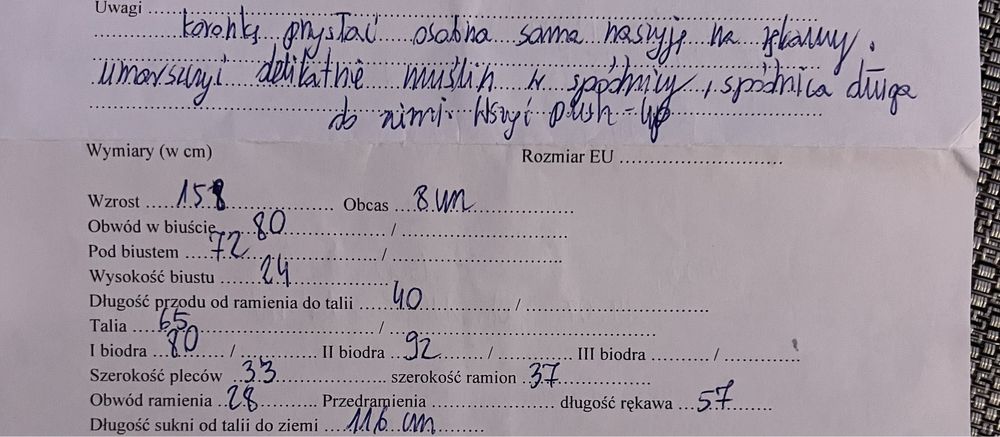 Uwagi koronkę przysłać osobna sama naszyję na rękawy.
umarszczyć delikatnie muślin w spódnicy, spódnica długa
do ziemi. Wszyć push-up
Wymiary (w cm) Rozmiar EU
Wzrost 158 Obcas 8 cm
Obwód w biuście 80 /
Pod biustem 72 /
Wysokość biustu 24
Długość przodu od ramienia do talii 40 /
Talia 65 /
I biodra 80 / II biodra 92 / III biodra /
Szerokość pleców 33 szerokość ramion 37
Obwód ramienia 28 Przedramienia długość rękawa 57
Długość sukni od talii do ziemi 116 cm